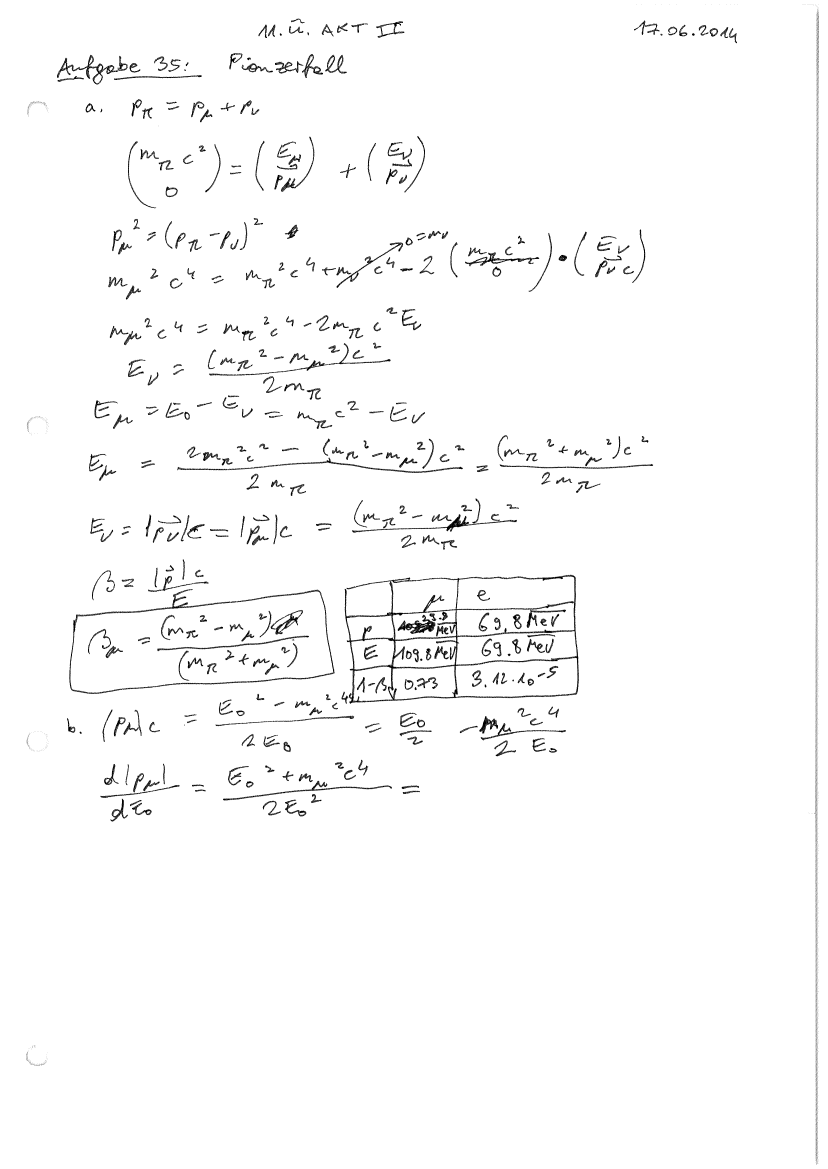 11. Ü. AKT II 17.06.2014
Aufgabe 35: Pionzerfall
a. p_π = p_μ + p_ν
(m_π c² / 0) = (E_μ / p⃗_μ) + (E_ν / p⃗_ν)
p_μ² = (p_π - p_ν)²
m_μ² c⁴ = m_π² c⁴ + m_ν² c⁴ → 0 = m_ν - 2 (m_π c² / 0) • (E_ν / p⃗_ν c)
m_μ² c⁴ = m_π² c⁴ - 2 m_π c² E_ν
E_ν = (m_π² - m_μ²) c² / 2 m_π
E_μ = E_0 - E_ν = m_π c² - E_ν
E_μ = 2 m_π² c² - (m_π² - m_μ²) c² / 2 m_π = (m_π² + m_μ²) c² / 2 m_π
E_ν = |p⃗_ν| c = |p⃗_μ| c = (m_π² - m_μ²) c² / 2 m_π
β = |p⃗| c / E
β_μ = (m_π² - m_μ²) / (m_π² + m_μ²)
μ e
p 29.8 MeV 69,8 MeV
E 109.8 MeV 69.8 MeV
1-β 0.73 3.12·10⁻⁵
b. |p_μ| c = E_0² - m_μ² c⁴ / 2 E_0 = E_0 / 2 - m_μ² c⁴ / 2 E_0
d|p_μ| / dE_0 = E_0² + m_μ² c⁴ / 2 E_0² =